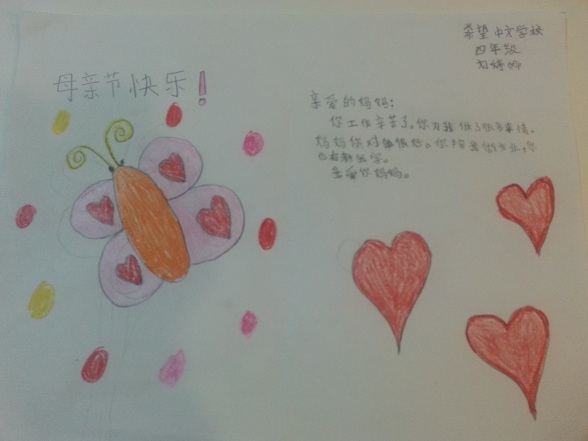 希望中文学校
四年级
母亲节快乐!
亲爱的妈妈:
你工作辛苦了。你为我做了很多事情。
妈妈你对我很好。你陪我做作业,你
我爱你妈妈。